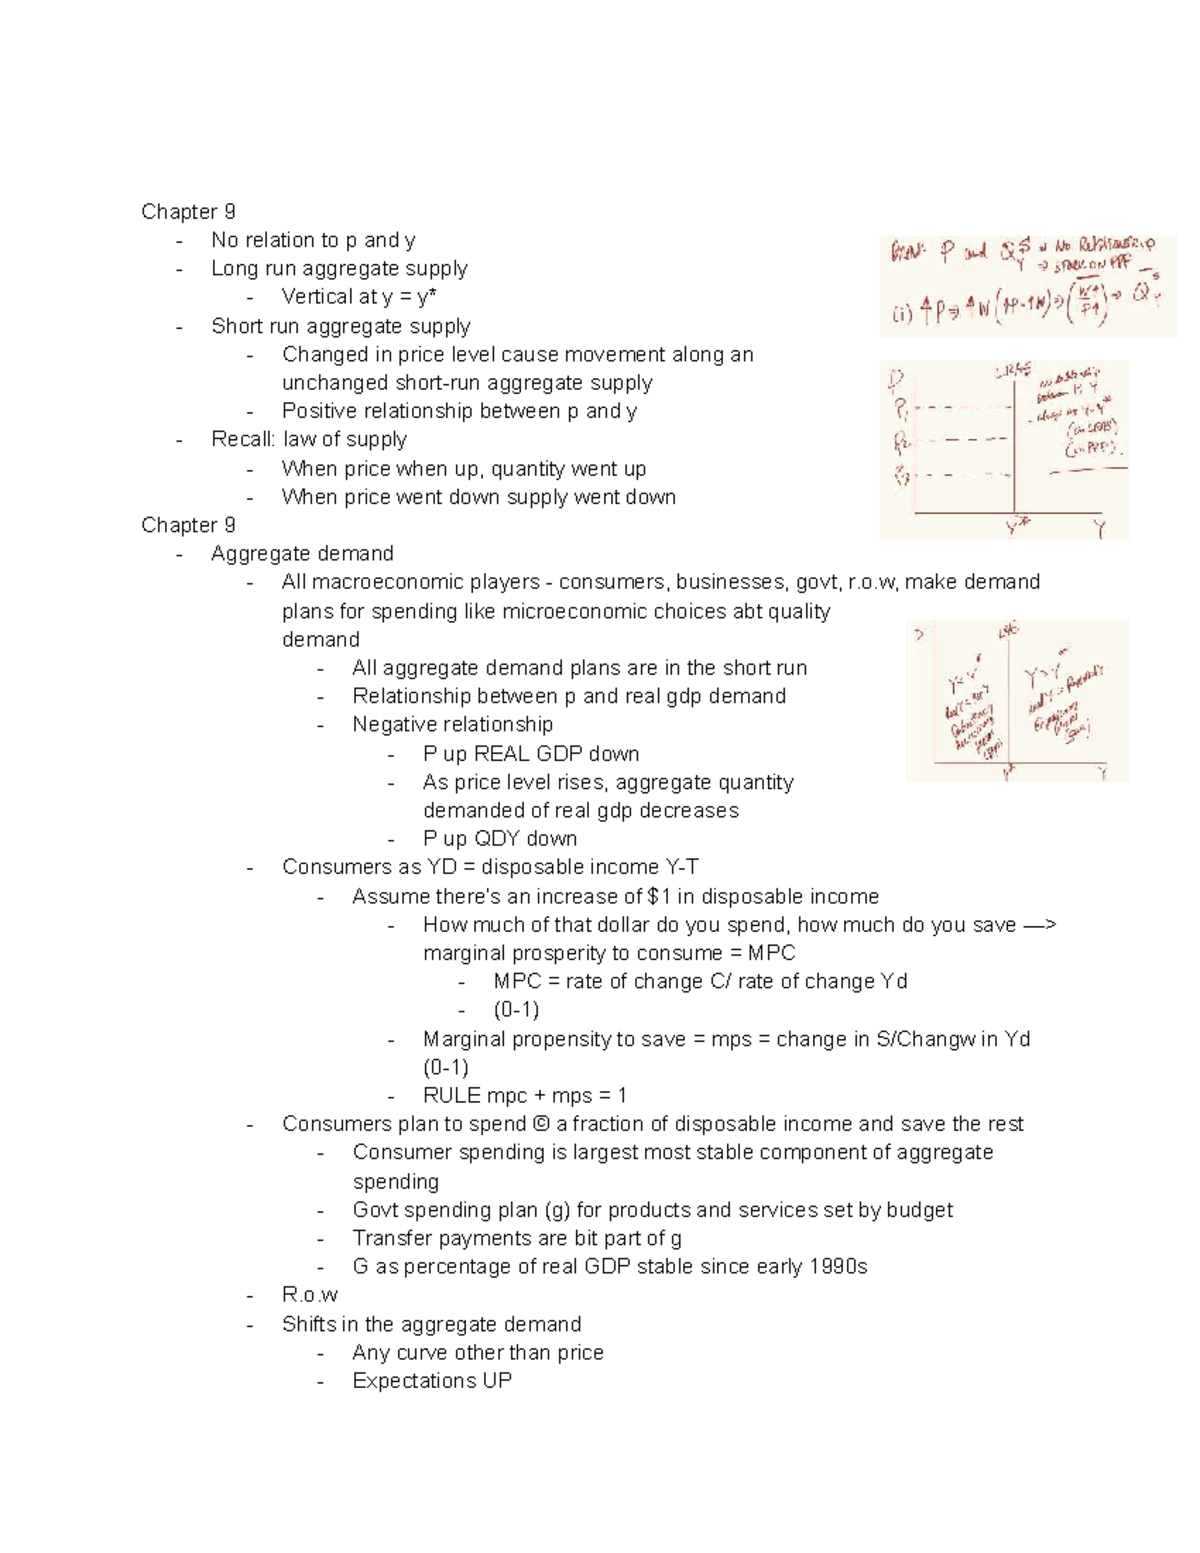 Chapter 9
- No relation to p and y
- Long run aggregate supply
- Vertical at y = y*
- Short run aggregate supply
- Changed in price level cause movement along an
unchanged short-run aggregate supply
- Positive relationship between p and y
- Recall: law of supply
- When price when up, quantity went up
- When price went down supply went down
P and Q$ Y ⇒ No Relationship
⇒ STUCK ON PPF
(i) ↑P ⇒ ↑W (↑P = ↑W) ⇒ (W↑/P↑) ⇒ Q S Y
P LRAS
P1
P2
P3
No relationship
between P, Y
- always at Y = Y*
(on LRAS)
(on PPF).
Y* Y
Chapter 9
- Aggregate demand
- All macroeconomic players - consumers, businesses, govt, r.o.w, make demand
plans for spending like microeconomic choices abt quality
demand
- All aggregate demand plans are in the short run
- Relationship between p and real gdp demand
- Negative relationship
- P up REAL GDP down
- As price level rises, aggregate quantity
demanded of real gdp decreases
- P up QDY down
Y<Y* Y>Y*
Y* Y
- Consumers as YD = disposable income Y-T
- Assume there's an increase of $1 in disposable income
- How much of that dollar do you spend, how much do you save —>
marginal prosperity to consume = MPC
- MPC = rate of change C/ rate of change Yd
- (0-1)
- Marginal propensity to save = mps = change in S/Changw in Yd
(0-1)
- RULE mpc + mps = 1
- Consumers plan to spend © a fraction of disposable income and save the rest
- Consumer spending is largest most stable component of aggregate
spending
- Govt spending plan (g) for products and services set by budget
- Transfer payments are bit part of g
- G as percentage of real GDP stable since early 1990s
- R.o.w
- Shifts in the aggregate demand
- Any curve other than price
- Expectations UP